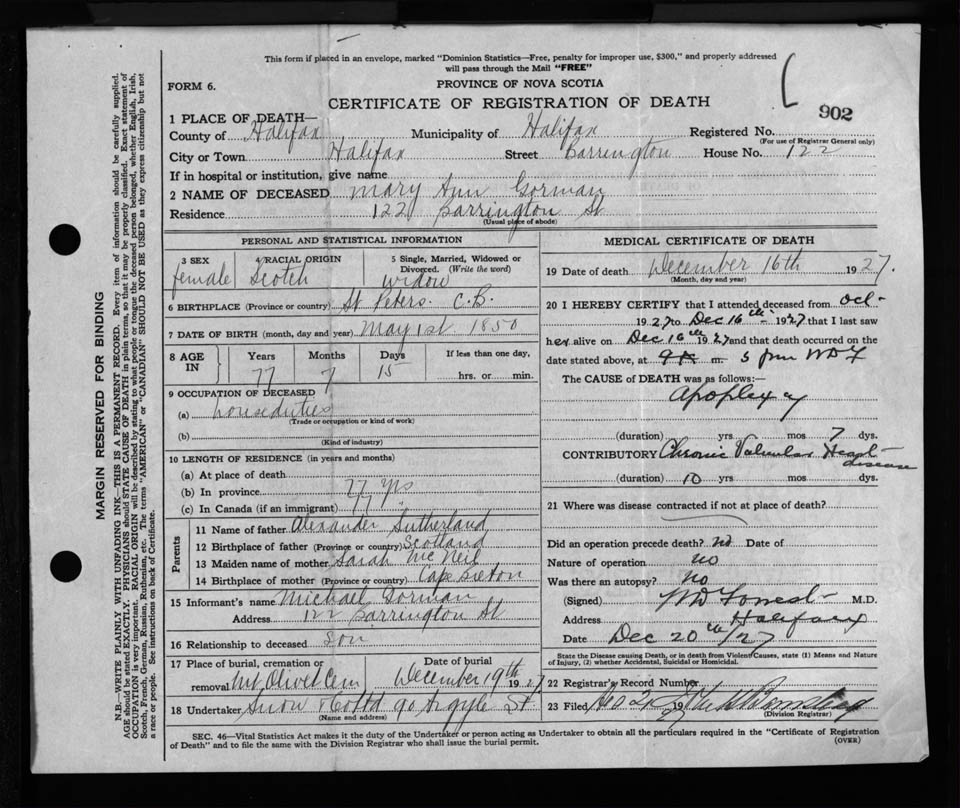 This form if placed in an envelope, marked "Dominion Statistics—Free, penalty for improper use, $300," and properly addressed
will pass through the Mail "FREE"
FORM 6.
PROVINCE OF NOVA SCOTIA
CERTIFICATE OF REGISTRATION OF DEATH
902
1 PLACE OF DEATH—
County of Halifax Municipality of Halifax Registered No.
(For use of Registrar General only)
City or Town Halifax Street Barrington House No. 122
If in hospital or institution, give name
2 NAME OF DECEASED Mary Ann Gorman
Residence 122 Barrington St
(Usual place of abode)
PERSONAL AND STATISTICAL INFORMATION
3 SEX 4 RACIAL ORIGIN 5 Single, Married, Widowed or
Divorced. (Write the word)
female Scotch widow
6 BIRTHPLACE (Province or country) St Peters. C.B.
7 DATE OF BIRTH (month, day and year) May 1st 1850
8 AGE IN Years Months Days If less than one day,
77 7 15 hrs. or min.
9 OCCUPATION OF DECEASED
(a) house duties
(Trade or occupation or kind of work)
(b)
(Kind of industry)
10 LENGTH OF RESIDENCE (in years and months)
(a) At place of death
(b) In province 77 yrs
(c) In Canada (if an immigrant)
Parents
11 Name of father Alexander Sutherland
12 Birthplace of father (Province or country) Scotland
13 Maiden name of mother Sarah McNeil
14 Birthplace of mother (Province or country) Cape Breton
15 Informant's name Michael Gorman
Address 122 Barrington St
16 Relationship to deceased Son
17 Place of burial, cremation or Date of burial
removal Mt Olivet Cem December 19th 1927
18 Undertaker Snow & Co Ltd 90 Argyle St.
(Name and address)
MEDICAL CERTIFICATE OF DEATH
19 Date of death December 16th 1927.
(Month, day and year)
20 I HEREBY CERTIFY that I attended deceased from Oct-
1927 to Dec 16th 1927 that I last saw
her alive on Dec 16th 1927 and that death occurred on the
date stated above, at 9 A m. 5 pm
The CAUSE OF DEATH was as follows:—
Apoplexy
(duration) yrs mos 7 dys.
CONTRIBUTORY Chronic Valvular Heart
disease
(duration) 10 yrs mos dys.
21 Where was disease contracted if not at place of death?
Did an operation precede death? no Date of
Nature of operation no
Was there an autopsy? no
(Signed) M.D.
Address Halifax
Date Dec 20th/27
State the Disease causing Death, or in death from Violent Causes, state (1) Means and Nature
of Injury, (2) whether Accidental, Suicidal or Homicidal.
22 Registrar's Record Number
23 Filed 19
(Division Registrar)
SEC. 46—Vital Statistics Act makes it the duty of the Undertaker or person acting as Undertaker to obtain all the particulars required in the "Certificate of Registration
of Death" and to file the same with the Division Registrar who shall issue the burial permit.
(OVER)
MARGIN RESERVED FOR BINDING
N.B.—WRITE PLAINLY WITH UNFADING INK—THIS IS A PERMANENT RECORD. Every item of information should be carefully supplied.
AGE should be stated EXACTLY. PHYSICIANS should STATE CAUSE OF DEATH in plain terms, so that it may be properly classified. Exact statement of
OCCUPATION is very important. RACIAL ORIGIN will be described by stating to what people or tongue the deceased person belonged, whether English, Irish,
Scotch, French, German, Russian, Ruthenian, etc. The terms "AMERICAN" or "CANADIAN" SHOULD NOT BE USED as they express citizenship but not
a race or people. See instructions on back of Certificate.